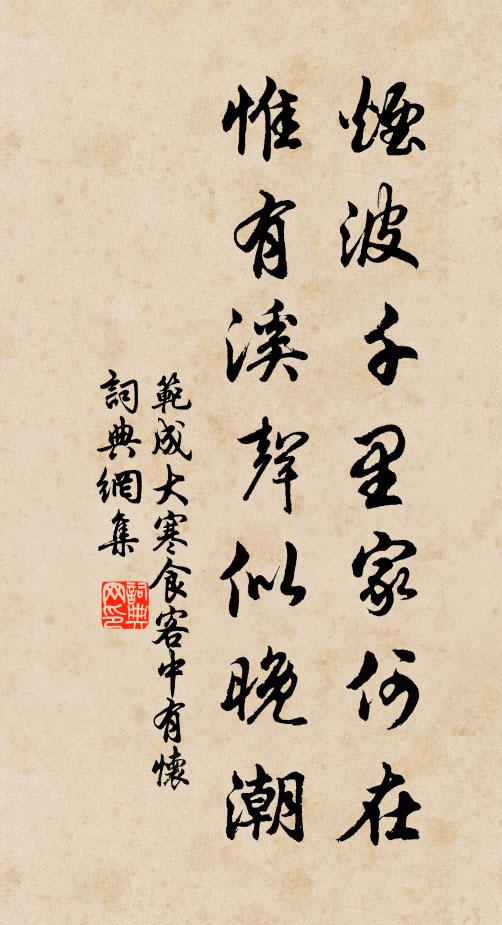 煙波千里家何在
惟有溪聲似晚潮
範成大寒食客中有懷
詞典網集
詞典
网印